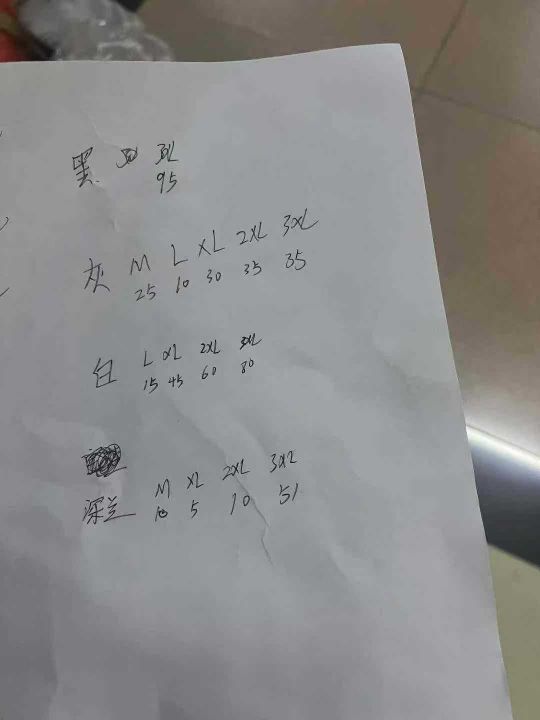 黑 3XL
95
灰 M L XL 2XL 3XL
25 10 30 35 35
白 L XL 2XL 3XL
15 45 60 80
深兰 M XL 2XL 3XL
10 5 10 51